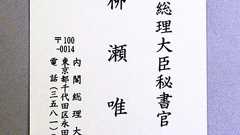 総理大臣秘書官
柳瀬唯
〒100
-0014
内閣総理大
東京都千代田区永田
電話(三五八一)